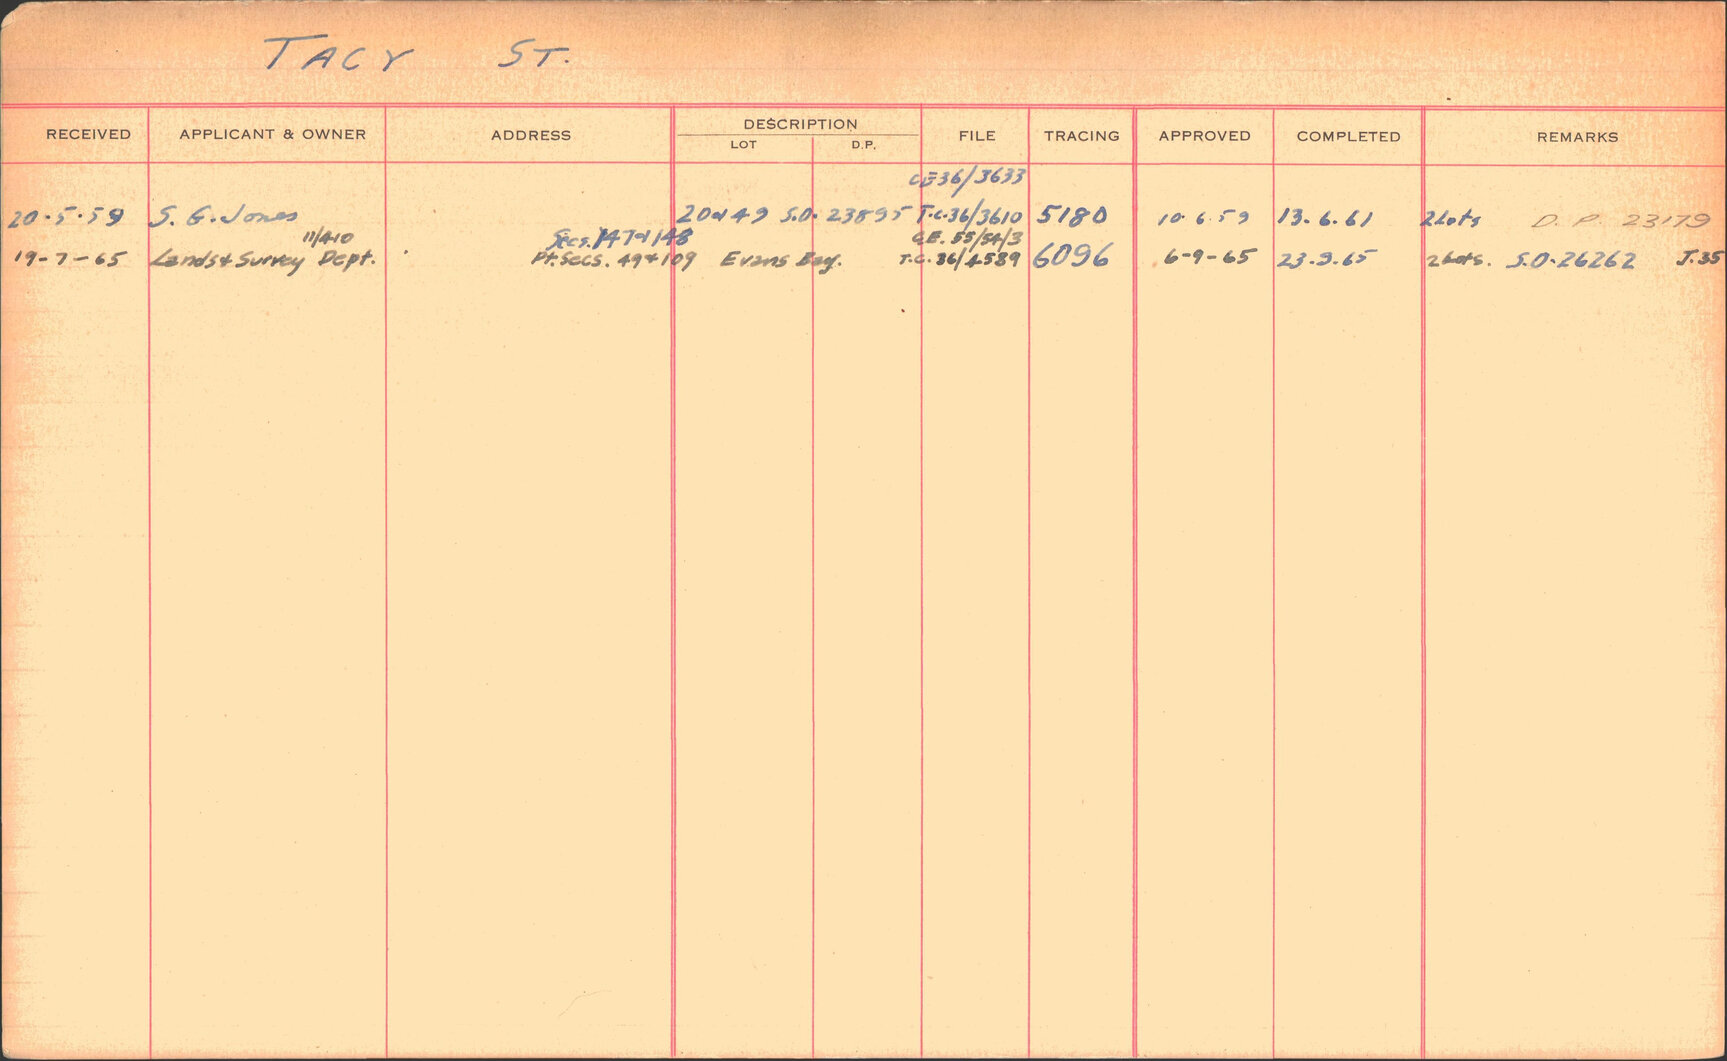 TACY ST.
RECEIVED APPLICANT & OWNER ADDRESS DESCRIPTION FILE TRACING APPROVED COMPLETED REMARKS
LOT D.P.
CE36/3633
20.5.59 S. G. Jones 20 of 49 S.O. 23895 T.C.36/3610 5180 10.6.59 13.6.61 2 Lots D. P. 23179
11/410 Secs. 147 & 148 C.E. 55/54/3
19-7-65 Lands & Survey Dept. Pt. Secs. 49 & 109 Evans Bay. T.C.36/4589 6096 6-9-65 23.9.65 2 Lots. S.O.26262 J.35